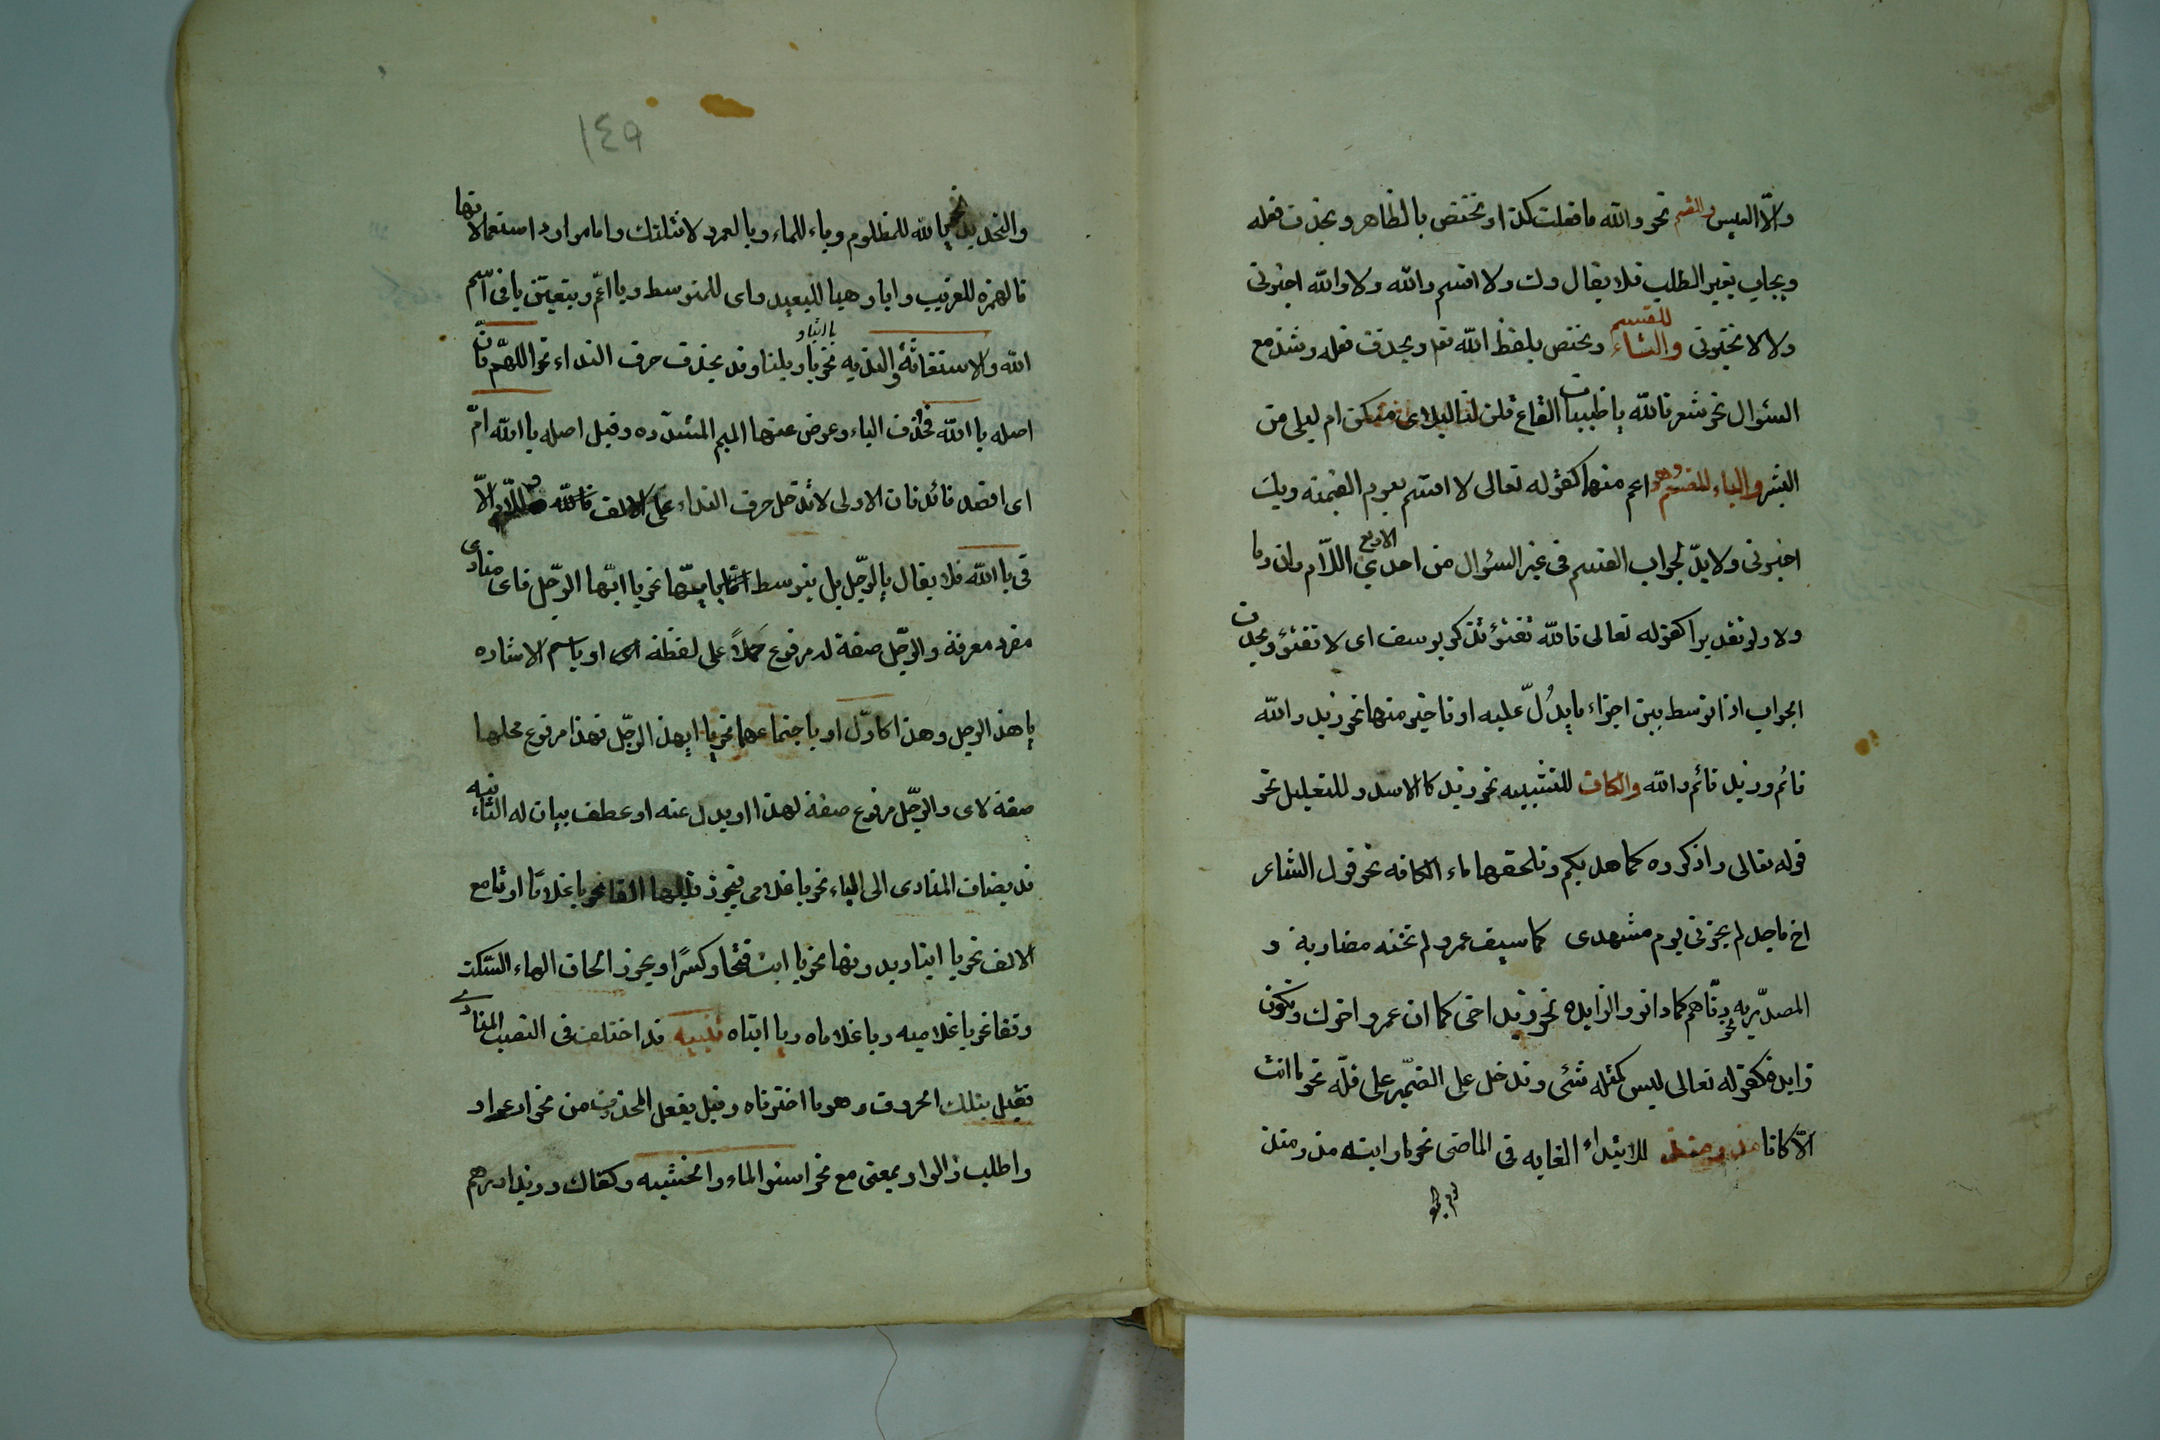 والّا العيس والقسم نحو والله ما فعلت كذا وتختص بالظاهر ويحذف فعله
ويجاب بغير الطلب فلا يقال وك ولا اقسم والله ولا والله اخبرنى
ولا لا تخبرنى والتاء للقسم ويختص بلفظ الله تع ويحذف فعله وشذ مع
السئوال نحو شعر تالله يا ظبيات القاع قلن لنا ليلاى منكن ام ليلى من
البشر والباء للقسم وهو اعم منها كقوله تعالى لا اقسم بيوم القيمة وبك
اخبرنى ولا بدّ لجواب القسم فى غير السئوال من احدي الاربع اللّام وان وما
ولا ولو تقديرا كقوله تعالى تالله تفتؤ تذكر يوسف اى لا تفتؤ ويحذف
الجواب اذا توسط بين اجزاء ما يدُلّ عليه او تاخير منها نحو زيد والله
قائم وزيد قائم والله والكاف للتشبيه نحو زيد كالاسد وللتعليل نحو
قوله تعالى واذكروه كما هديكم وتلحقها ماء الكافه نحو قول الشاعر
اخ ماجد لم يخزنى يوم مشهدى كما سيف عمرو لم تخنه مضاربة و
المصدّريه نحو دنّاهم كما دانو والزايده نحو زيد اخى كما ان عمرو اخوك وتكون
زايده كقوله تعالى ليس كمثله شئى وتدخل على الضمّير على قلّه نحو ما انت
الّا كانا مذ ومنذ للابتداء الغايه فى الماضى نحو ما رايته مذ ومنذ
يوم الجمعه
١٤٩
والتحذير نحو يا لله للمظلوم وياء للماء ويا لعمرو لاقتلنك واما موارد استعمالاتها
فالهمزه للقريب وايا وهيا للبعيد واى للمتوسط ويا اعمّ ويتعيّن يا فى اسّم
الله والاستغاثة والندبه نحو يا ويلنا وقد يحذف حرف النداء نحو اللهّم فانّ
اصله يا الله فحذف الياء وعوض عنها الميم المشدّده وقيل اصله يا الله امّ
اى اقصد قائد فان الاولى لا تدخل حرف النداء على الالف واللّام الّا
فى يا الله فلا يقال يا الرجّل بل يتوسط ايّها نحو يا ايّها الرجّل فاى منادى
مفرد معرفة والرجّل صفة له مرفوع حملاً على لفظة اى او باسم الاشاره
يا هذا الرجل وهذا كاوّل او باجتماعهما نحو يا ايهذا الرجّل فهذا مرفوع محلها
صفة لاى والرجّل مرفوع صفة لهذا او بدل عنه او عطف بيان له الثانيه
قد يضاف المنادى الى الياء نحو يا غلامى فيجوز قلبها الفا نحو يا غلامًا او تا مع
الالف نحو يا ابتا وبدونها نحو يا ابت فتحًا وكسرًا ويجوز الحاق الهاء السّكت
وقفا نحو يا غلاميه ويا غلاماه ويا ابتاه تنبيه قد اختلف فى النصب المنادى
فقيل بتلك الحروف وهو ما اخترناه وقيل بفعل المحذوف من نحو ادعوا و
واطلب والواو بمعنى مع نحو استو الماء والخشبه وكفاك وزيدا درهم